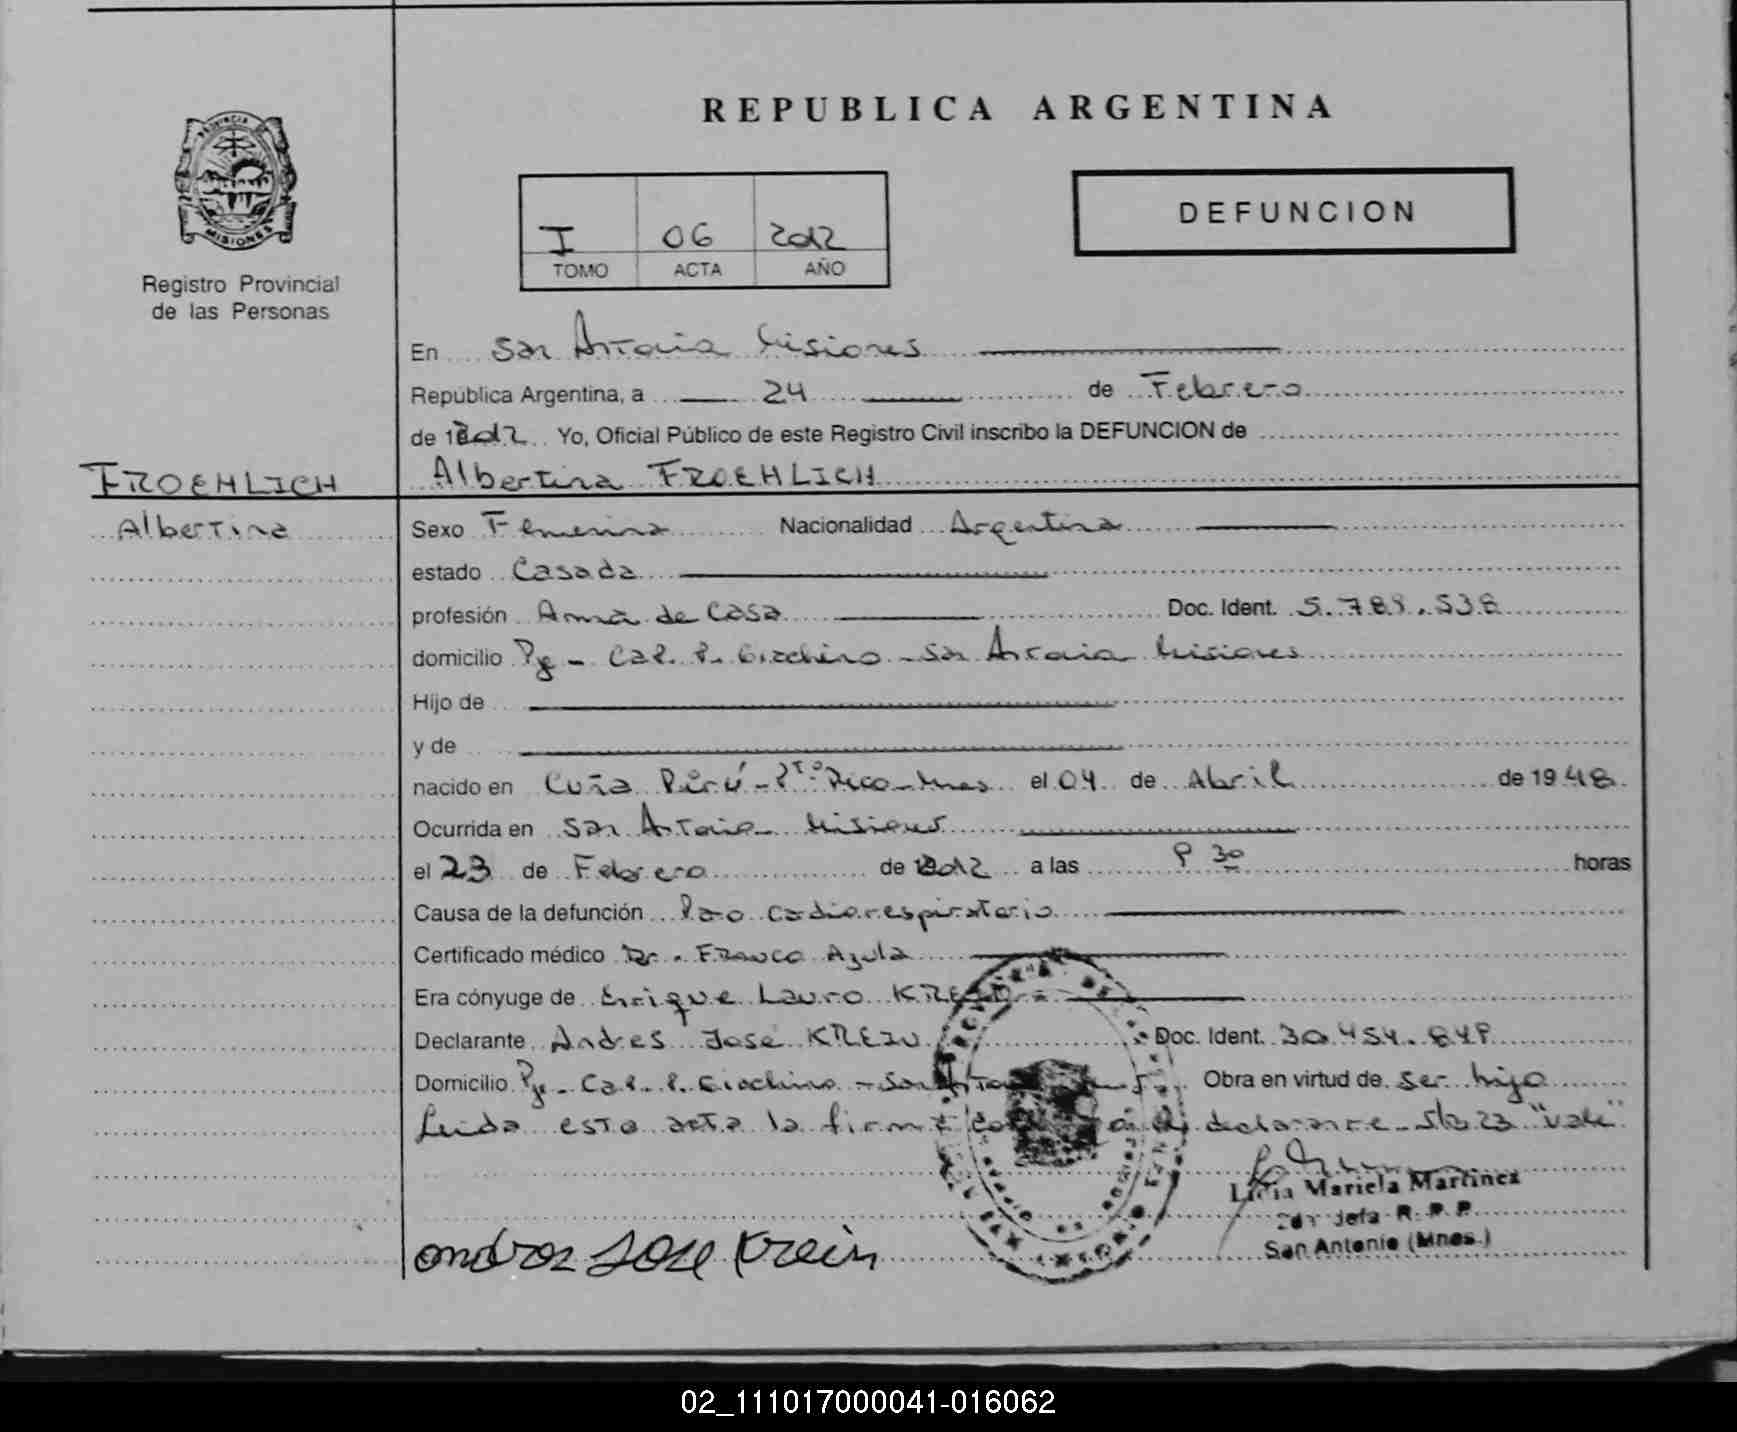 REPUBLICA ARGENTINA
PROVINCIA DE
MISIONES
Registro Provincial
de las Personas
I 06 2012
TOMO ACTA AÑO
DEFUNCION
En San Antonio Misiones
República Argentina, a 24 de Febrero
de 2012 Yo, Oficial Público de este Registro Civil inscribo la DEFUNCION de
FROEHLICH Albertina FROEHLICH
Albertina Sexo Femenina Nacionalidad Argentina
estado Casada
profesión Ama de Casa Doc. Ident.
domicilio Pje - Cap. P. Giachino - San Antonio Misiones
Hijo de
y de
nacido en Cuña Pirú - Pto Rico - Mnes el 04 de Abril de 1948
Ocurrida en San Antonio Misiones
el 23 de Febrero de 2012 a las horas
Causa de la defunción Paro Cardiorespiratorio
Certificado médico Dr. Franco Ayala
Era cónyuge de Enrique Lauro
Declarante Andres José KREIN Doc. Ident.
Domicilio Pje - Cap. P. Giachino - San Obra en virtud de Ser hijo
Leida esta acta la firma declarante - S/b 23 "Vale"
Licia Mariela Martinez
Jefa R. P. P.
San Antonio (Mnes.)
andres Jose Krein
02_111017000041-016062